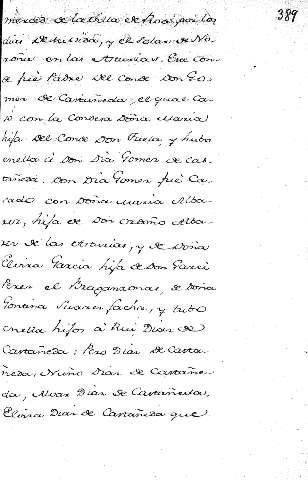 389
merced de la Villa de Rosas por los
dias de su vida, y el Solar de No-
roña en las Asturias. Este Con-
de fue Padre del Conde Don Go-
mez de Castañeda, el qual ca-
só con la Condesa Doña Maria
hija del Conde Don Fruela, y hubo
en ella á Don Dia Gomez de Cas-
tañeda. Don Dia Gomez fue Ca-
sado con Doña Maria Alba-
rez, hija de Don Ordoño Alba-
rez de las Asturias, y de Doña
Elvira Garcia hija de Don Garci
Perez el Braganzonas, de Doña
Gontina Suarez facha, y tubo
en ella hijos á Rui Diaz de
Castañeda: Pero Diaz de Casta-
ñeda, Nuño Diaz de Castañe-
da, Alvar Diaz de Castañeda,
Elvira Diaz de Castañeda que